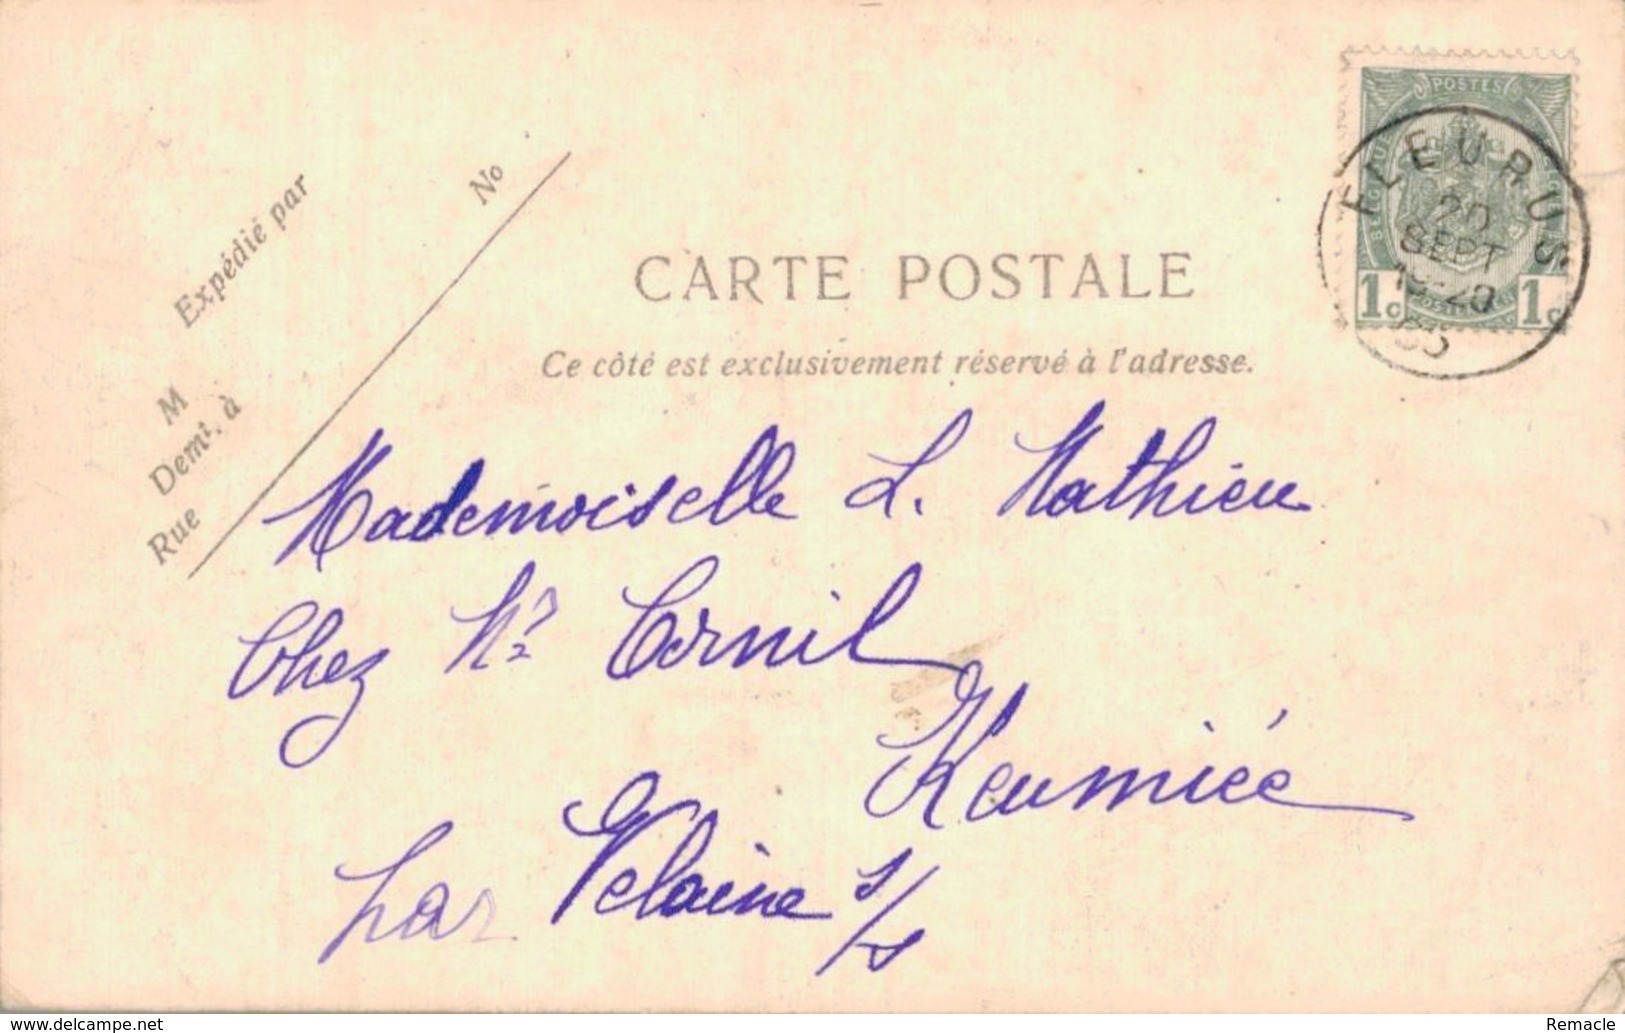 Expédié par
No
M
Demt. à
Rue
CARTE POSTALE
Ce côté est exclusivement réservé à l'adresse.
POSTES
1c 1c
FLEURUS
20
SEPT
Mademoiselle L. Mathieu
Chez Mr Cornil
Keumiée
par Velaine s/s
www.delcampe.net
Remacle